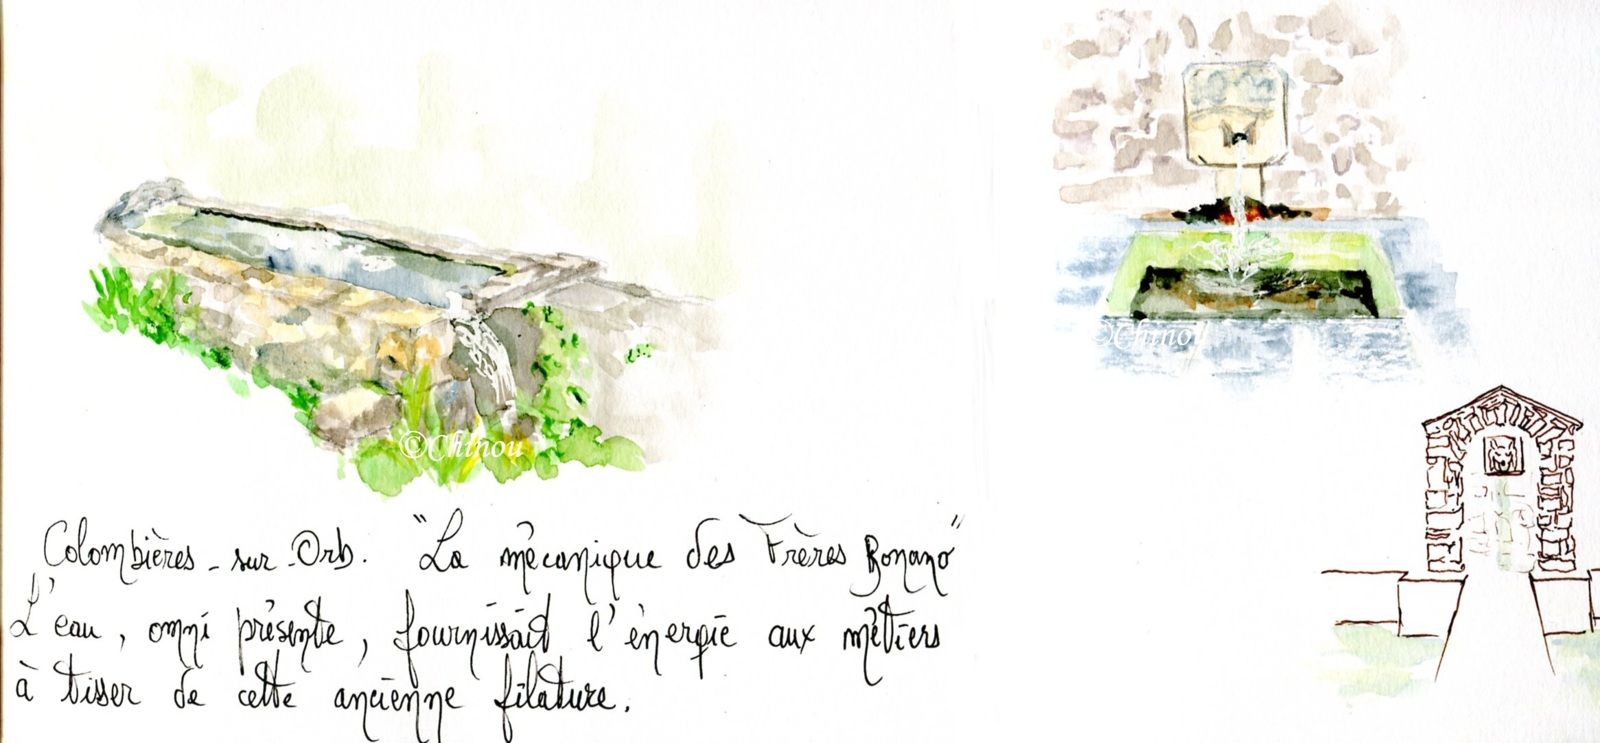 ©Chinou
©Chinou
Colombières-sur-Orb. "La mécanique des Frères Bonano"
L'eau, omni présente, fournissait l'énergie aux métiers
à tisser de cette ancienne filature.